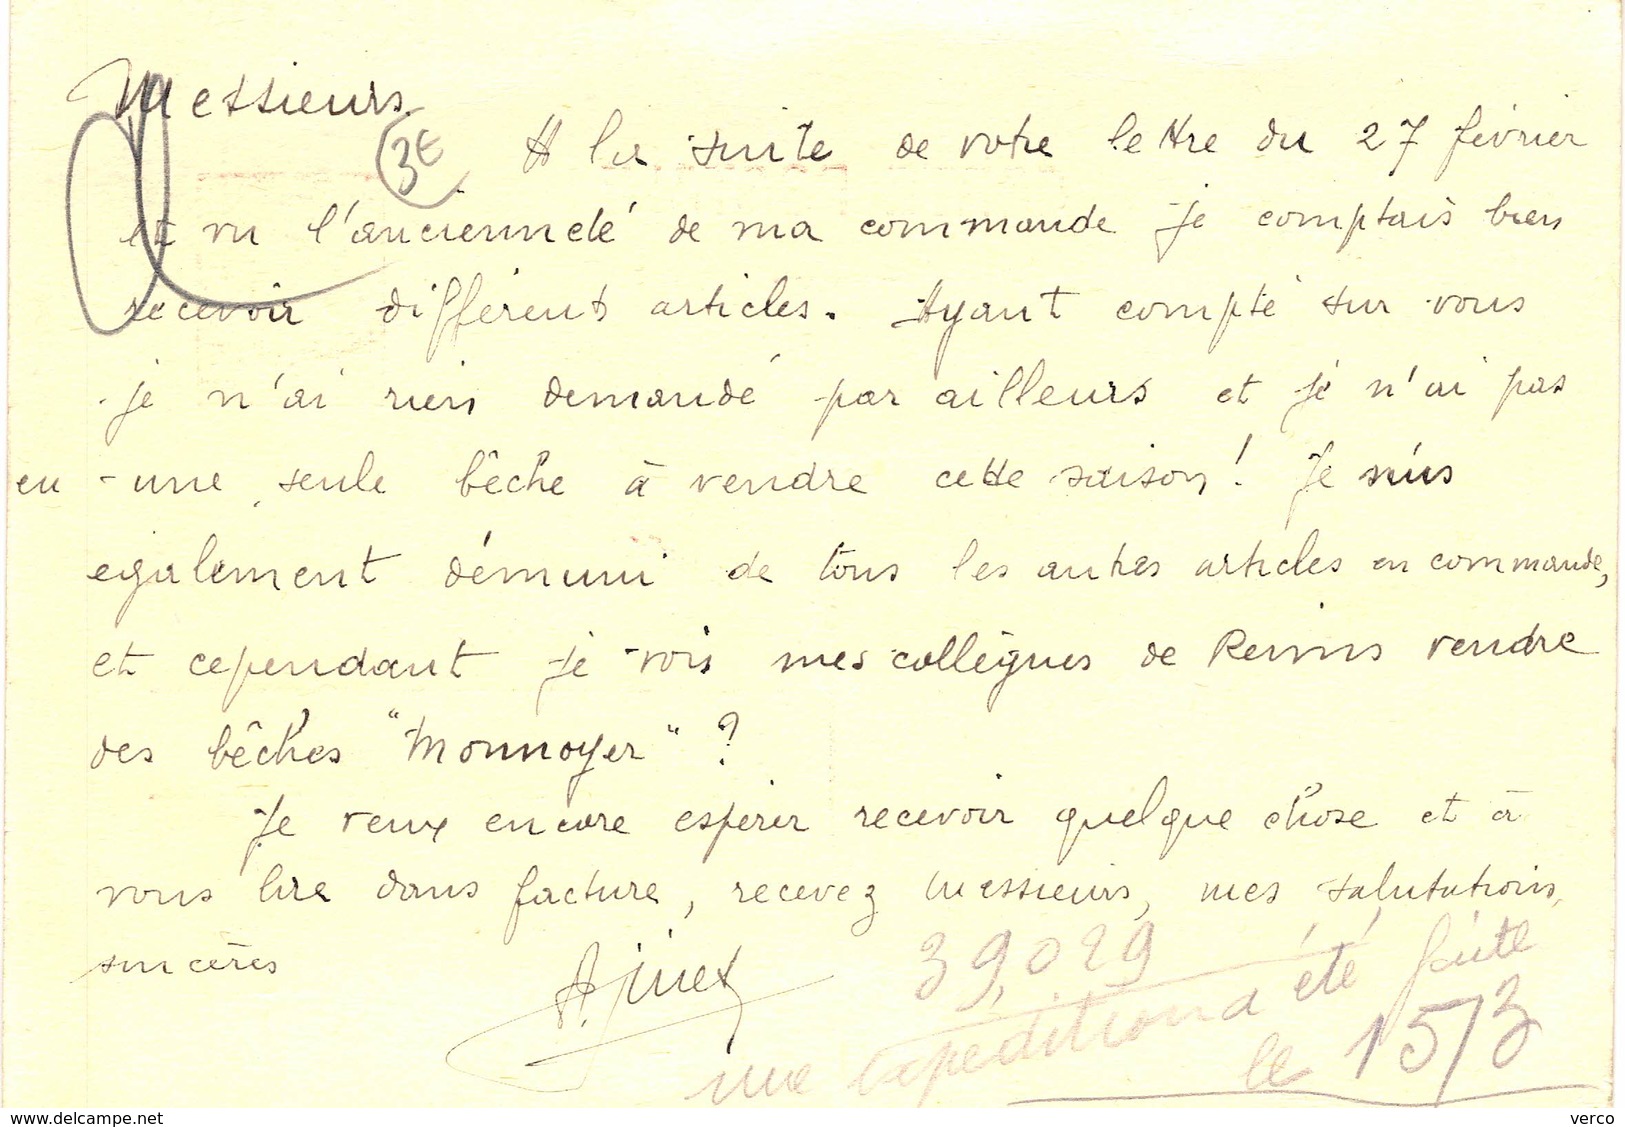 Messieurs
3€
A la suite de votre lettre du 27 février
et vu l'ancienneté de ma commande je comptais bien
recevoir différents articles. Ayant compté sur vous
je n'ai rien demandé par ailleurs et je n'ai pas
eu une seule bêche à vendre cette saison! Je suis
egalement démuni de tous les autres articles en commande,
et cependant je vois mes collègues de Reims vendre
des bêches "Monnoyer" ?
Je veux encore espérer recevoir quelque chose et à
vous lire dans facture, recevez Messieurs, mes salutations,
sincères
39,029
une expédition a été faite
le 15/3
www.delcampe.net
verco